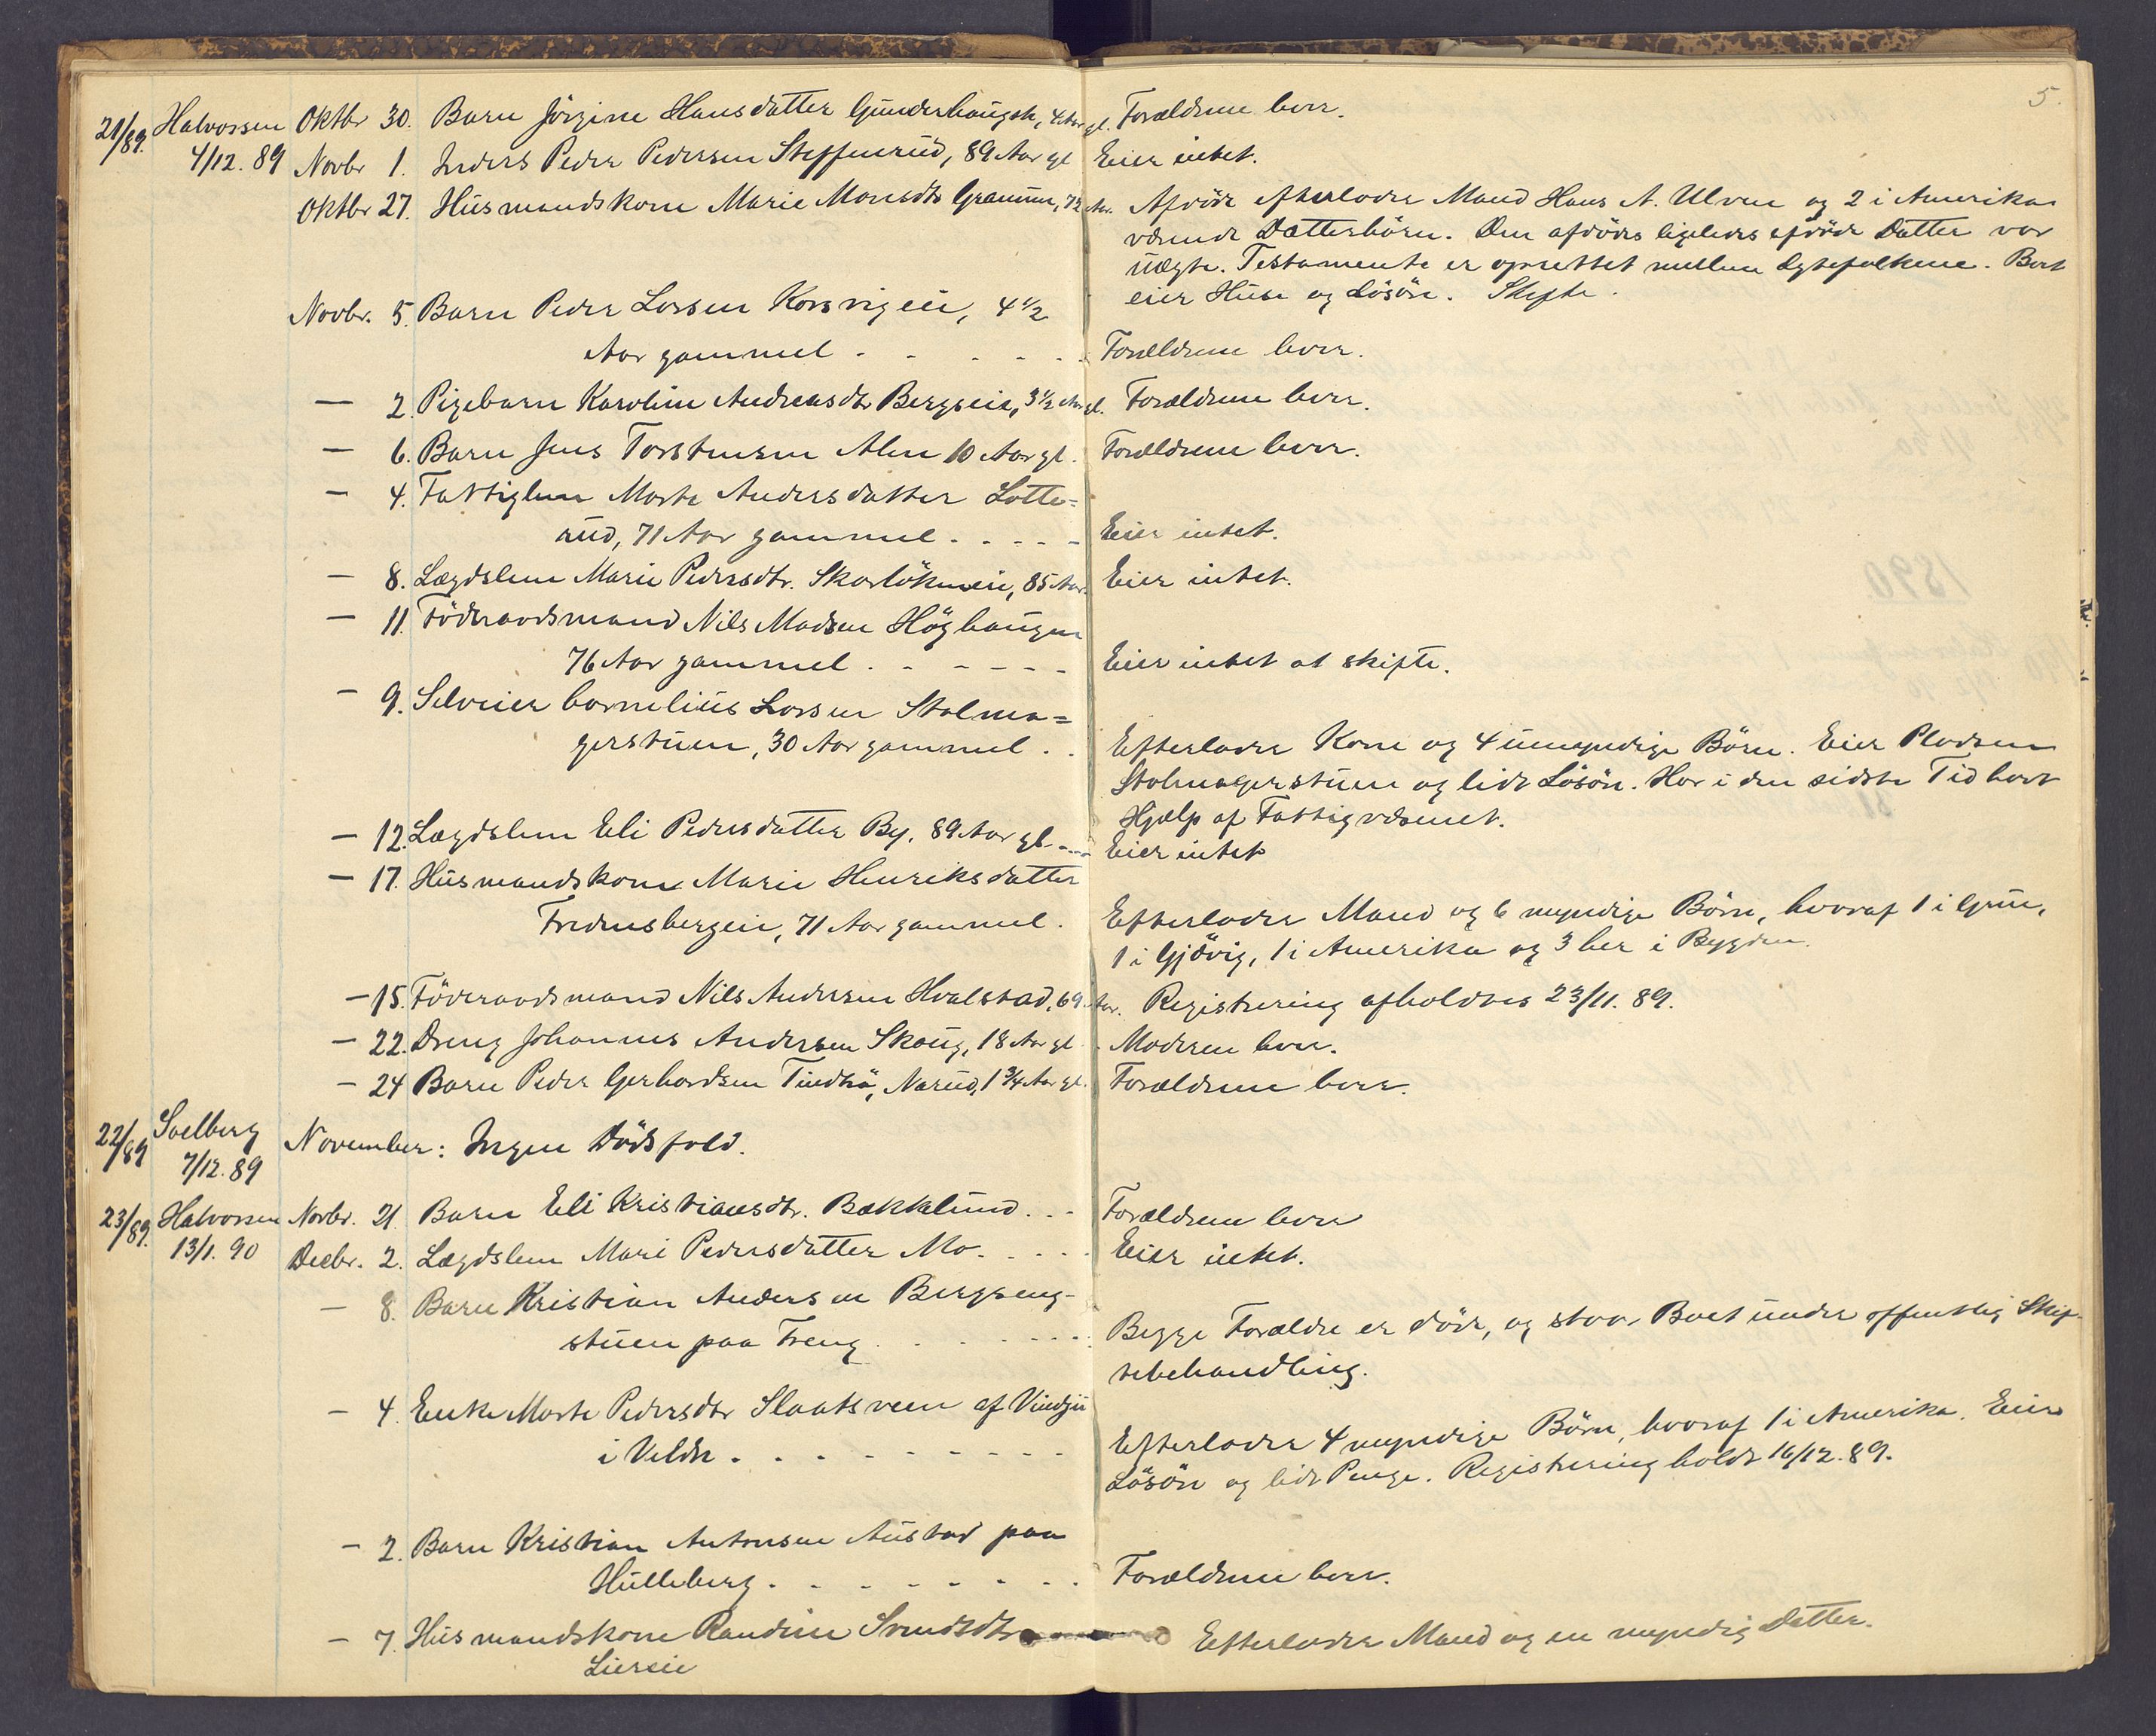 5.
21/89. Halvorsen Oktbr 30. Barn Jörgine Hansdatter Gunderhaugen, 4 Aar gl. Forældrene lever.
4/12. 89 Novbr 1. Inders Peder Pedersen Steffensrud, 89 Aar gl Eier intet.
Oktbr 27. Husmandskone Marie Monsdtr Gramm, 72 Aar. Afdöde efterlader Mand Hans A. Ulven og 2 i Amerika
værende Datterbörn. Den afdödes ligeledes afdöde Datter var
uægte. Testamente er oprettet mellem Egtefolkene. Boet
eier Huse og Lösöre. Skifte.
Novbr. 5. Barn Peder Larsen Korsvigeie, 4 1/2
Aar gammel . - - - - Forældrene lever.
— 2. Pigebarn Karoline Andreasdtr Bergseie, 3 1/2 Aar gl. Forældrene lever.
— 6. Barn Jens Torstensen Alm 10 Aar gl. Forældrene lever.
— 4. Fattiglem Marte Andersdatter Lotte=
rud, 71 Aar gammel . - - - - Eier intet.
— 8. Lægdslem Marie Pedersdtr. Skarlökkeneie, 85 Aar. Eier intet.
— 11. Föderaadsmand Nils Madsen Höghaugen
76 Aar gammel . - - - - - Eier intet at skifte.
— 9. Selveier Cornelius Larsen Stolma=
gerstuen, 30 Aar gammel . . Efterlader Kone og 4 umyndige Börn. Eier Pladsen
Stolmagerstuen og lidt Lösöre. Har i den sidste Tid havt
Hjælp af Fattigvæsenet.
— 12. Lægdslem Eli Pedersdatter By, 89 Aar gl. - - - Eier intet
— 17. Husmandskone Marie Henriksdatter
Fredensbergeie, 71 Aar gammel. Efterlader Mand og 6 myndige Börn, hvoraf 1 i Grue,
1 i Gjövig, 1 i Amerika og 3 her i Bygden.
— 15. Föderaadsmand Nils Andersen Hvalstad, 69 Aar. Registrering afholdtes 23/11. 89.
— 22. Dreng Johannes Andersen Skaug, 18 Aar gl. . Moderen lever.
— 24 Barn Peder Gerhardsen Tindlu, Narud, 1 3/4 Aar gl. Forældrene lever.
22/89 Soelberg November: Ingen Dödsfald.
7/12. 89
23/89. Halvorsen Novbr. 21 Barn Eli Kristiansdtr. Bækkelund . . - Forældrene lever
13/1. 90 Decbr. 2. Lægdslem Mari Pedersdatter Mo. - - - - Eier intet.
— 8. Barn Kristian Andersen Bergseng-
stuen paa Freng . . - - - - Begge Forældre er döde, og staar Boet under offentlig Skif-
tebehandling.
— 4. Enke Marte Pedersdtr Slaatsveen af Vindju
i Veldre . - - - - - - - Efterlader 4 myndige Börn, hvoraf 1 i Amerika. Eier
Lösöre og lidt Penge. Registrering holdt 16/12. 89.
— 2. Barn Kristian Antonsen Austad paa
Hulleberg . - - - - - - - Forældrene lever.
— 7. Husmandskone Randine Svendsdtr Efterlader Mand og en myndig Datter.
Liereie
1890